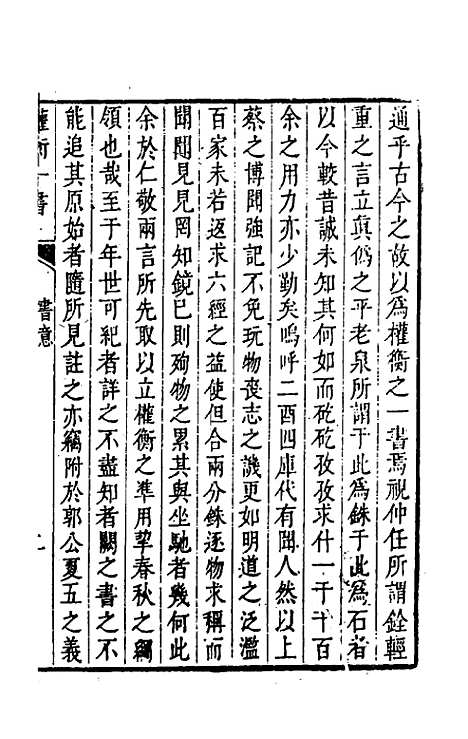 通乎古今之故以爲權衡之一書焉視仲任所謂銓輕
重之言立眞僞之平老泉所謂于此爲銖于此爲石者
以今較昔誠未知其何如而矻矻孜孜求什一于千百
余之用力亦少勤矣嗚呼二酉四庫代有聞人然以上
蔡之博聞強記不免玩物喪志之譏更如明道之泛濫
百家未若返求六經之益使但合兩分銖逐物求稱而
聞聞見見罔知鏡已則殉物之累其與坐馳者幾何此
余於仁敬兩言所先取以立權衡之準用挈春秋之綱
領也哉至于年世可紀者詳之不盡知者闕之書之不
能追其原始者隨所見註之亦竊附於郭公夏五之義
權衡一書
書意